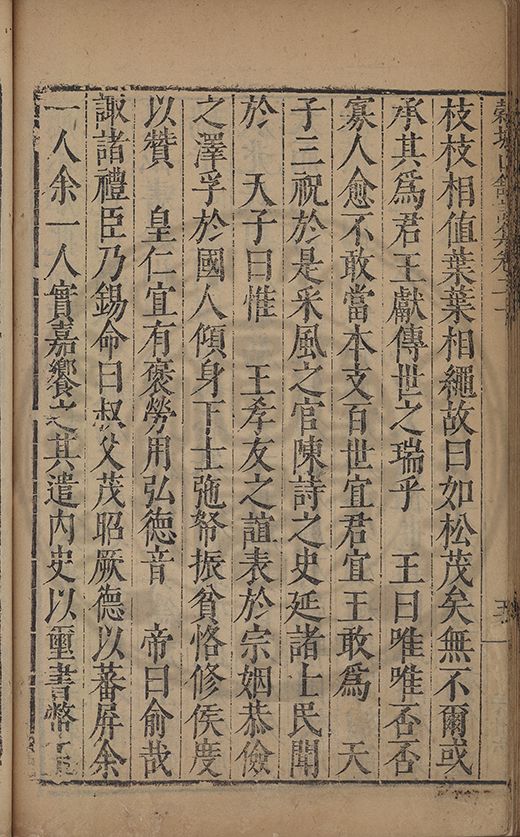 枝枝相值葉葉相繩故曰如松茂矣無不爾或
承其為君王獻傳世之瑞乎　王曰唯唯否否
寡人愈不敢當本支百世宜君宜王敢為　天
子三祝於是采風之官陳詩之史延諸士民聞
於　天子曰惟　王孝友之誼表於宗姻恭儉
之澤孚於國人傾身下士弛帑振貧恪修侯度
以贊　皇仁宜有褒勞用弘德音　帝曰俞哉
諏諸禮臣乃錫命曰叔父茂昭厥德以蕃屏余
一人余一人實嘉饗之其遣內史以璽書幣